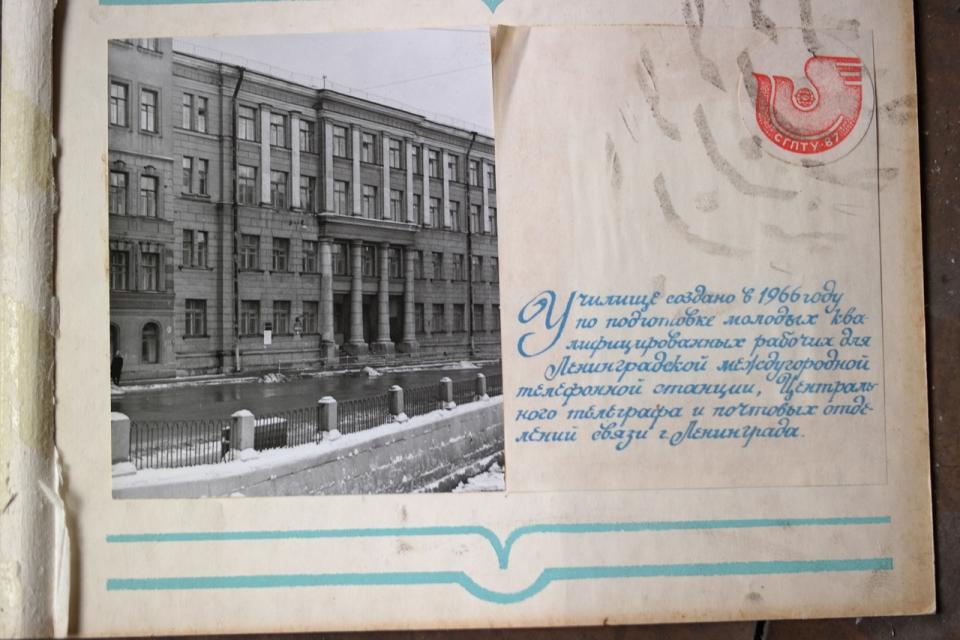 СГПТУ-87
Училище создано в 1966 году
по подготовке молодых ква-
лифицированных рабочих для
Ленинградской междугородной
телефонной станции, Централь-
ного телеграфа и почтовых отде-
лений связи г. Ленинграда.